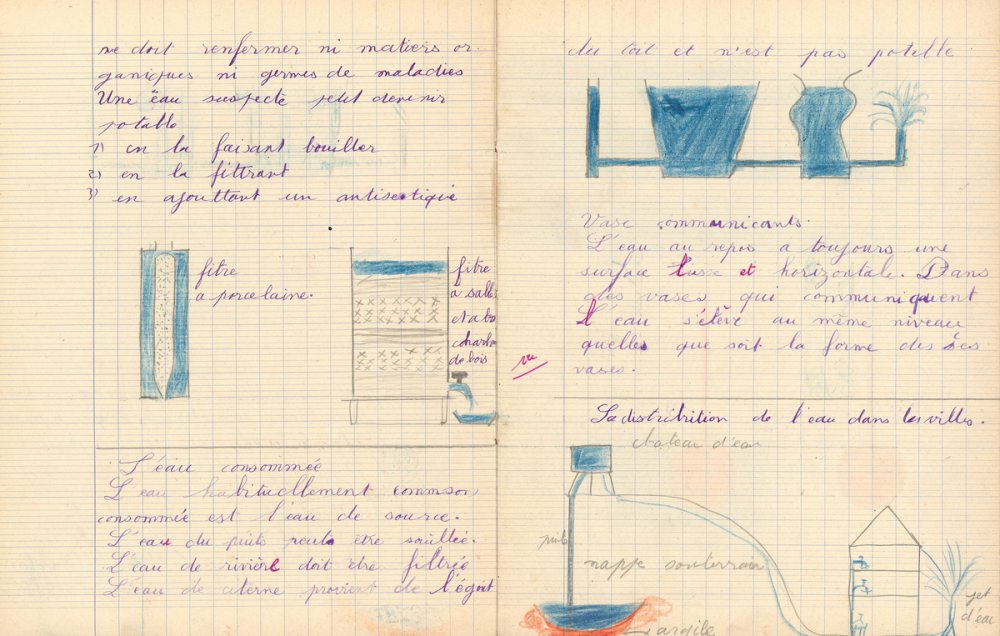 ne doit renfermer ni matiers or-
ganiques ni germes de maladies
Une eau suspecte peut devenir
potable
1) en la faisant bouiller
2) en la filtrant
3) en ajouttant un antiseptique
filtre
a porcelaine.
filtre
a sable
et a
charbon
de bois
L'eau consommée
L'eau habituellement commson
consommée est l'eau de source.
L'eau du puits peuts être souillée.
L'eau de rivière doit être filtrée
L'eau de citerne provient de l'égout
du toit et n'est pas potelle
Vase communicants.
L'eau au repos a toujours une
surface lusse et horizontale. Dans
des vases qui communiquent
L'eau s'élève au même niveau
quelles que soit la forme des ses
vases.
vu
La distribition de l'eau dans les villes.
chateau d'eau
puits
nappe souterrain
jet
d'eau
argile